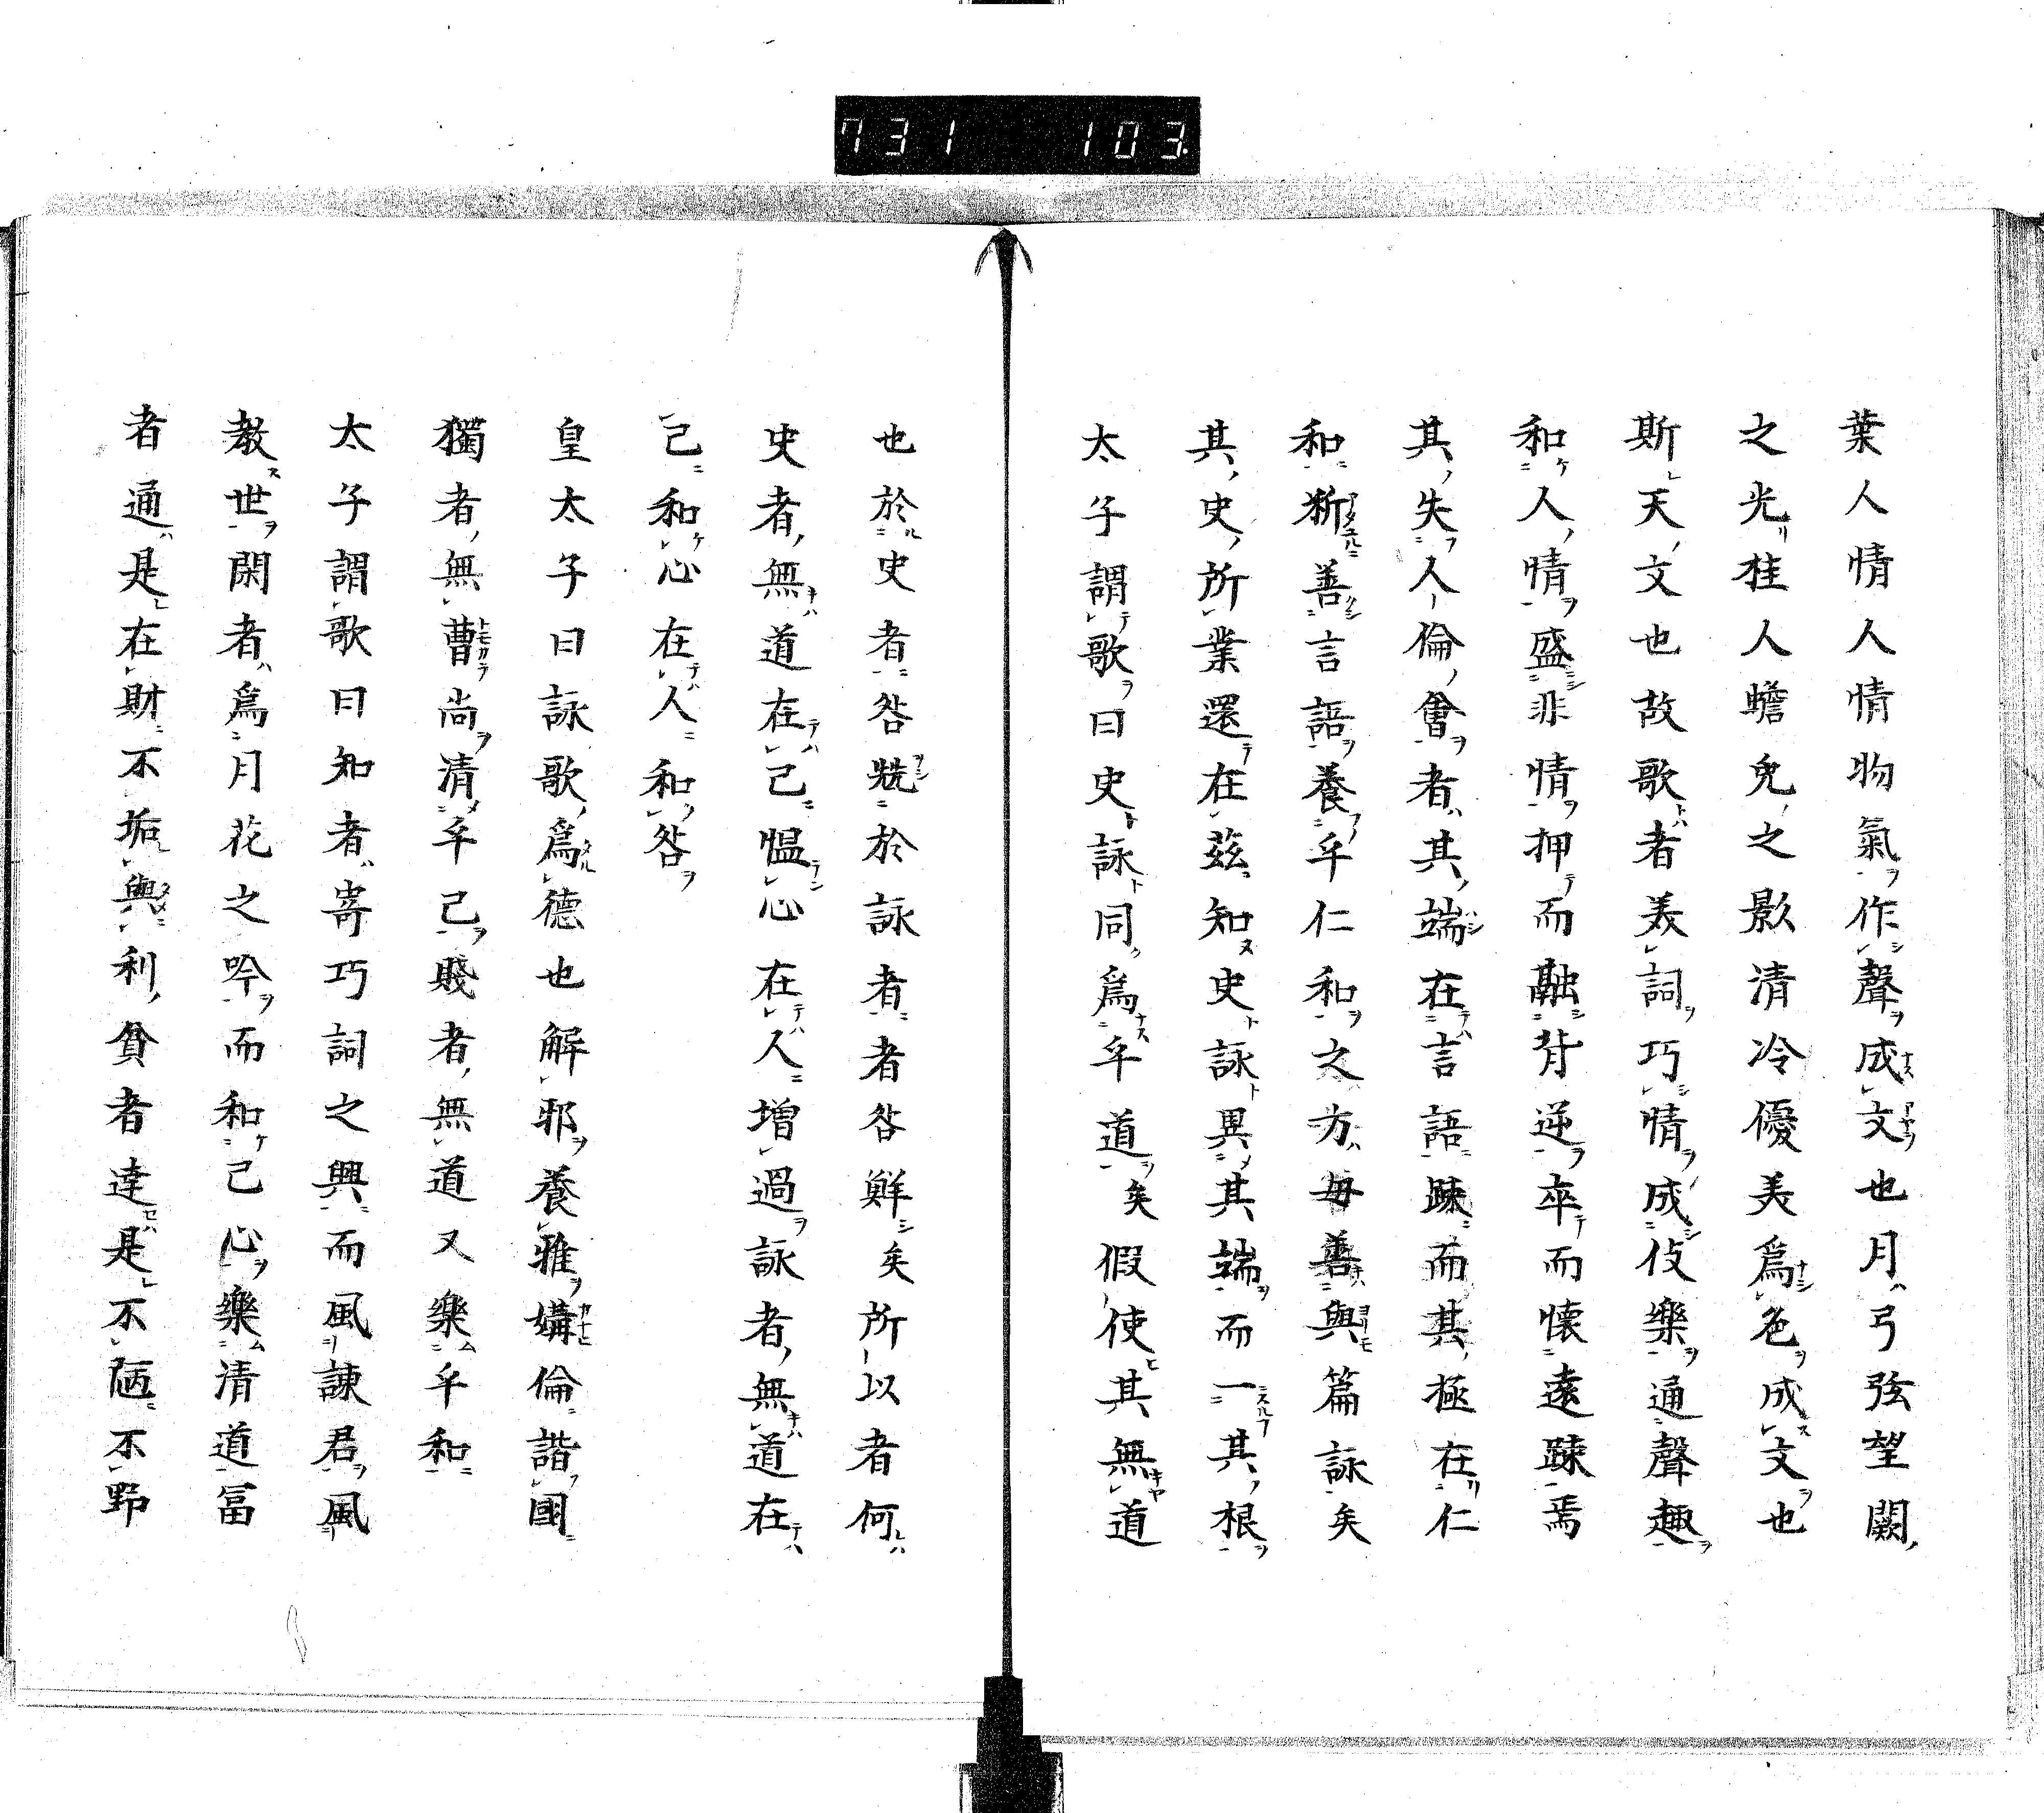 731 103
葉人情人情物氣作聲成文也月弓弦望闕
之光桂人蟾兔之影清冷優美爲色成文也
斯天文也故歌者美詞巧情成伎樂通聲趣
和人情盛非情押而融背逆卒而懷遠踈焉
其失人倫會者其端在言語踈而其極在仁
和斷善言語養乎仁和之方毎善與篇詠矣
其史所業還在茲知史詠異其端而一其根
太子謂歌曰史詠同爲乎道矣假使其無道
也於史者咎兢於詠者者咎鮮矣所以者何
史者無道在己慍心在人増過詠者無道在
己和心在人和咎
皇太子曰詠歌爲德也解邪養雅媾倫諧國
獨者無曹尚清乎己賤者無道又樂乎和
太子謂歌曰知者寄巧詞之興而風諌君風
教世閑者爲月花之吟而和己心樂清道冨
者通是在財不垢與利貧者達是不陋不野